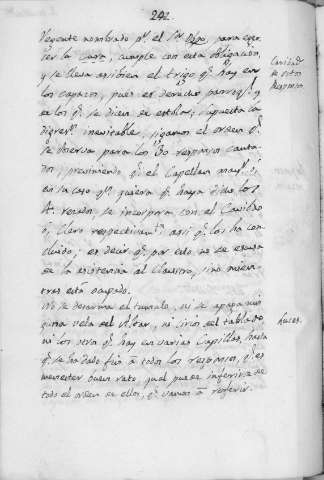 242.
Regente nombrado pr. el Sr. Obpo, para exer-
cer la cura, cumple con esta obligación,
y se lleva asi bien el trigo qe. hay en
los capazos, pues es derecho parroql. y
es los qe. se dicen de estola; supuesta la
digresn. inevitable, sigamos el orden qe.
se observa para los Do responsos canta-
dos, previniendo qe. el Capellan mayr.
en su caso qn. quiera qe. haya dicho los
rezados, se incorpora con el Cavildo
ó Clero respectivamte. asi qe. los ha con-
cluido; es decir qe. por esto no se escusa
de la asistencia al Claustro, sino mien-
tras está ocupado.
No se desarma el tumulo, ni se apaga nin
guna vela del Altar, ni cirio del tablado
ni los otros qe. hay en varias Capillas hasta
qe. se ha dado fin á todos los responsos, qe. es
menester buen rato, qual puede inferirse de
todo el orden de ellos, qe. vamos á referir.
Cantidad
de estos
Responsos
luces.